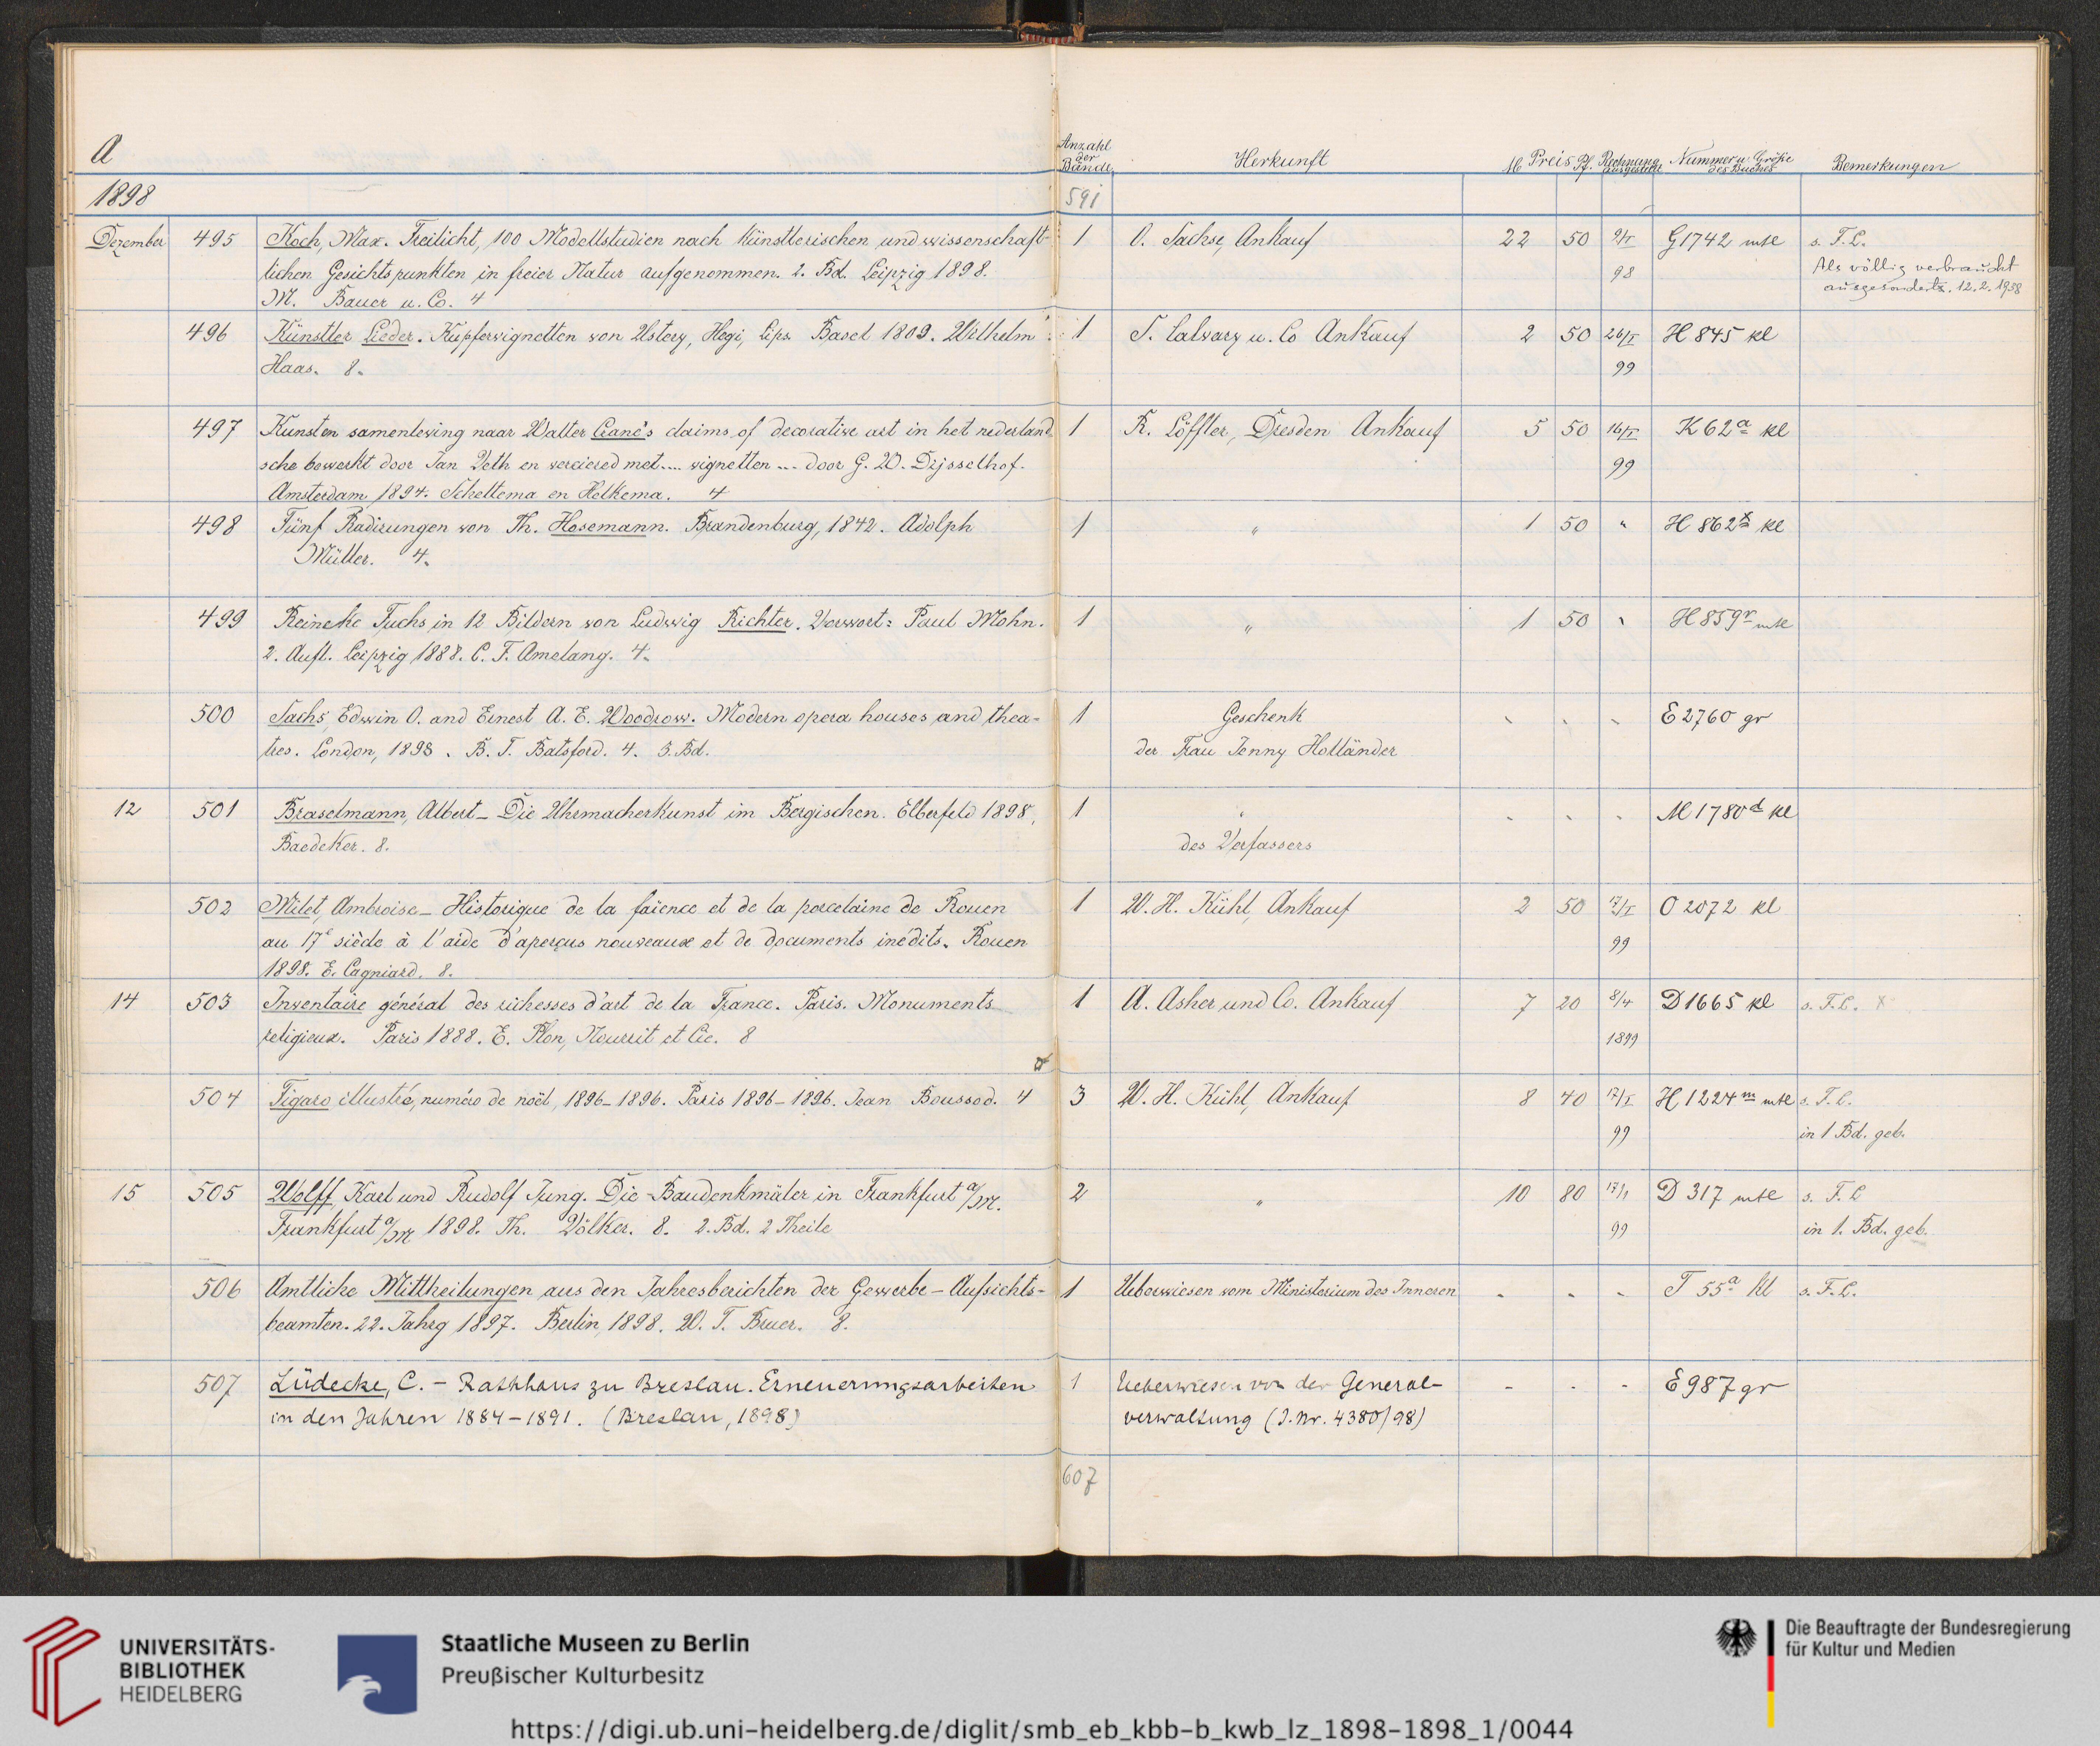 A
Anzahl der Bände
Herkunft
M. Preis Pf.
Rechnung ausgestellt
Nummer u. Größe des Buches
Bemerkungen
1898
591
Dezember 495 Koch, Max. Freilicht, 100 Modellstudien nach künstlerischen und wissenschaft- 1 O. Sachse, Ankauf 22 50 G 1742 mtl s. F.L.
lichen Gesichtspunkten in freier Natur aufgenommen. 2. Bd. Leipzig 1898. 98 Als völlig verbraucht
M. Bauer u. Co. 4 ausgesondert. 12.2.1938
496 Künstler Lieder. Kupfervignetten von Ustery, Hegi, Lips. Basel 1809. Wilhelm 1 S. Calvary u. Co Ankauf 2 50 26/I H 845 kl
Haas. 8. 99
497 Kunst en samenleving naar Walter Crane's claims of decorative art in het nederland 1 R. Löffler, Dresden Ankauf 5 50 16/I K 62a kl
sche bewerkt door Jan Veth en verciered met.... vignetten ... door G. W. Dijsselhof. 99
Amsterdam 1894. Scheltema en Holkema. 4
498 Fünf Radirungen von Th. Hosemann. Brandenburg, 1842. Adolph 1 " 1 50 " H 862 kl
Müller. 4.
499 Reineke Fuchs in 12 Bildern von Ludwig Richter. Vorwort: Paul Mohn. 1 " 1 50 " H 859r mtl
2. Aufl. Leipzig 1888. C. F. Amelang. 4.
500 Sachs, Edwin O. and Ernest A. E. Woodrow. Modern opera houses and thea- 1 Geschenk E 2760 gr
tres. London, 1898. B. T. Batsford. 4. 3. Bd. der Frau Jenny Holländer
12 501 Braselmann, Albert – Die Uhrmacherkunst im Bergischen. Elberfeld 1898, 1 " M 1780d kl
Baedeker. 8. des Verfassers
502 Milet, Ambroise – Historique de la faïence et de la porcelaine de Rouen 1 W. H. Kühl, Ankauf 2 50 17/I O 2072 kl
au 17e siècle à l'aide d'aperçus nouveaux et de documents inédits. Rouen 99
1898. E. Cagniard. 8.
14 503 Inventaire général des richesses d'art de la France. Paris. Monuments 1 A. Asher und Co. Ankauf 7 20 8/4 D 1665 kl s. F.L. x
religieux. Paris 1888. E. Plon, Nourrit et Cie. 8 1899
504 Figaro illustré, numéro de noël, 1896–1896. Paris 1896–1896. Jean Boussod. 4 3 W. H. Kühl, Ankauf 8 40 17/I H 1224m mtl s. F.L.
99 in 1 Bd. geb.
15 505 Wolff, Karl und Rudolf Jung. Die Baudenkmäler in Frankfurt a/M. 2 " 10 80 17/1 D 317 mtl s. F.L
Frankfurt a/M 1898. Th. Völker. 8. 2. Bd. 2 Theile 99 in 1. Bd. geb.
506 Amtliche Mittheilungen aus den Jahresberichten der Gewerbe – Aufsichts- 1 Ueberwiesen vom Ministerium des Inneren - - - T 55a kl s. F.L.
beamten. 22. Jahrg 1897. Berlin 1898. W. T. Bruer. 8.
507 Lüdecke, C. – Rathhaus zu Breslau. Erneuerungsarbeiten 1 Ueberwiesen von der General- - - - E 987 gr
in den Jahren 1884–1891. (Breslau, 1898) verwaltung (J. Nr. 4380/98)
607
UNIVERSITÄTS-
BIBLIOTHEK
HEIDELBERG
Staatliche Museen zu Berlin
Preußischer Kulturbesitz
Die Beauftragte der Bundesregierung
für Kultur und Medien
https://digi.ub.uni-heidelberg.de/diglit/smb_eb_kbb-b_kwb_lz_1898-1898_1/0044